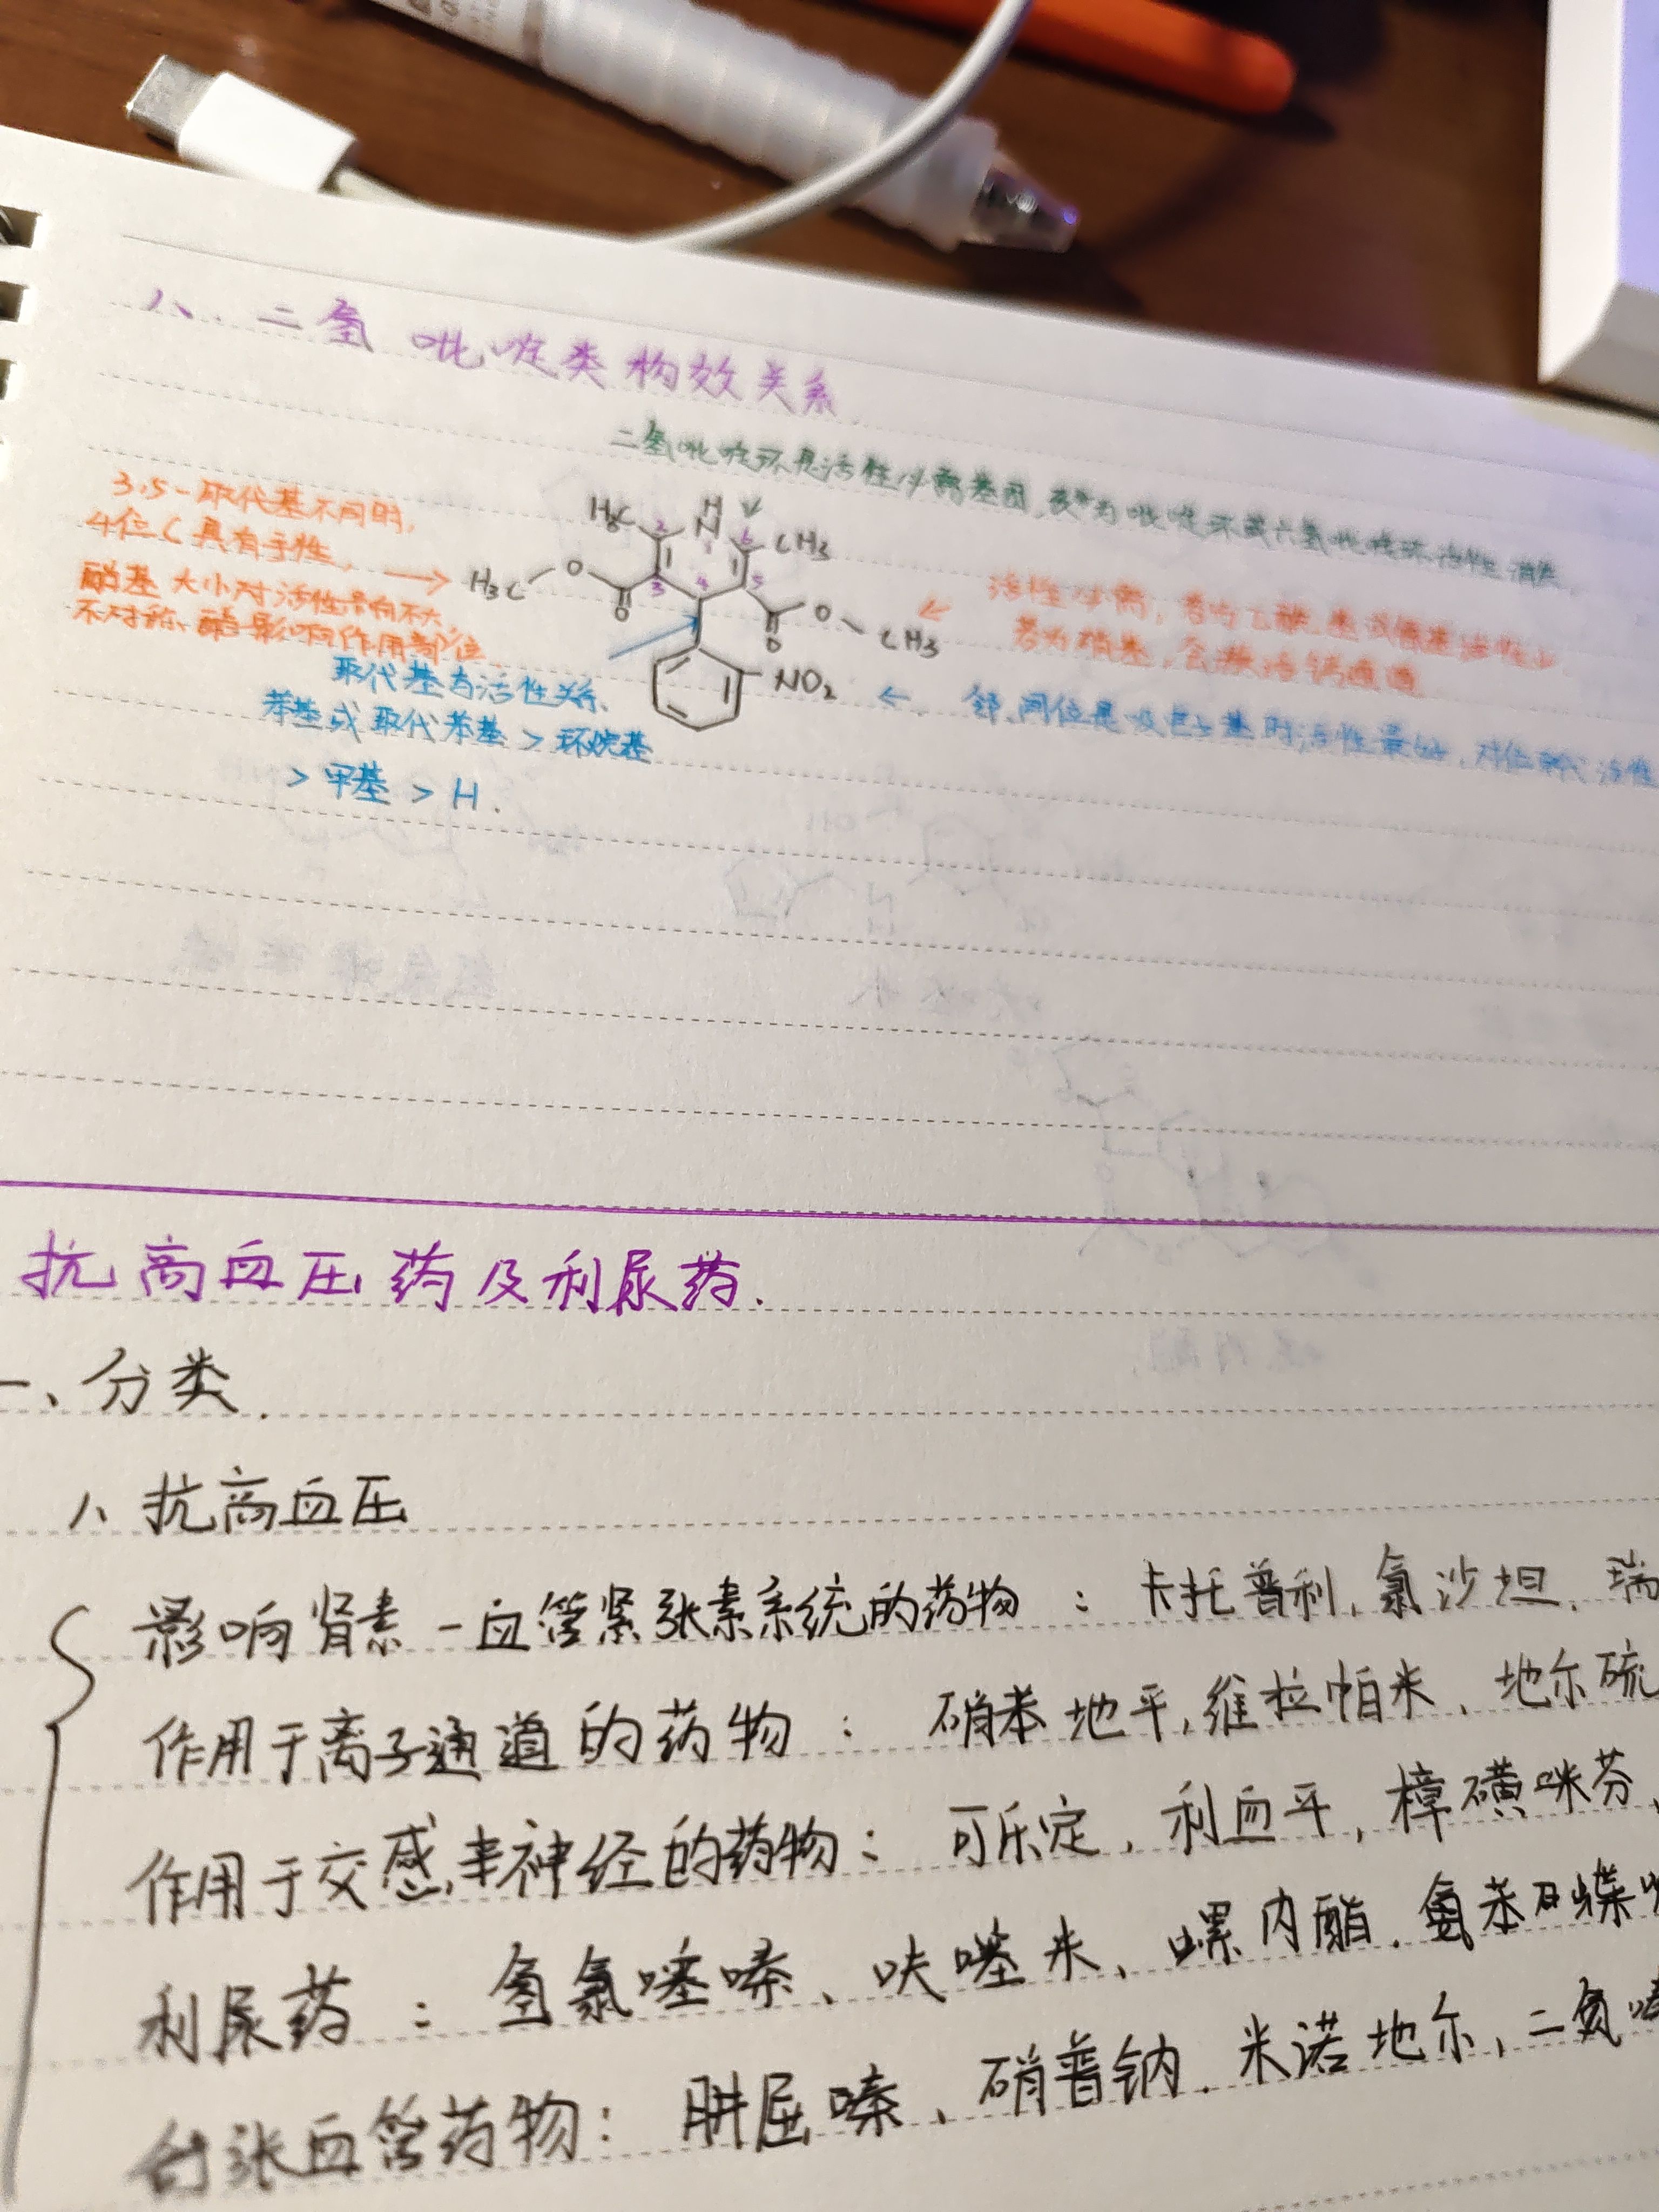 八、二氢吡啶类构效关系.
二氢吡啶环是活性必需基团,变为吡啶环或六氢吡啶环活性消失.
3,5-取代基不同时,
4位C具有手性,
酯基大小对活性影响不大
不对称酯影响作用部位
H₃C H N CH₃
2 1 6
3 4 5
H₃C O O O O CH₃
NO₂
活性必需,若为乙酰基或氰基活性↓.
若为硝基,会激活钙通道
取代基与活性关系.
苯基或取代苯基 > 环烷基
> 甲基 > H.
邻、间位是吸电子基时活性最好,对位取代活性
抗高血压药及利尿药.
一、分类.
1、抗高血压
影响肾素-血管紧张素系统的药物:卡托普利,氯沙坦、瑞
作用于离子通道的药物:硝苯地平,维拉帕米、地尔硫
作用于交感神经的药物:可乐定,利血平,樟磺咪芬、
利尿药:氢氯噻嗪、呋噻米、螺内酯.氨苯蝶
张血管药物:肼屈嗪、硝普钠.米诺地尔,二氮嗪